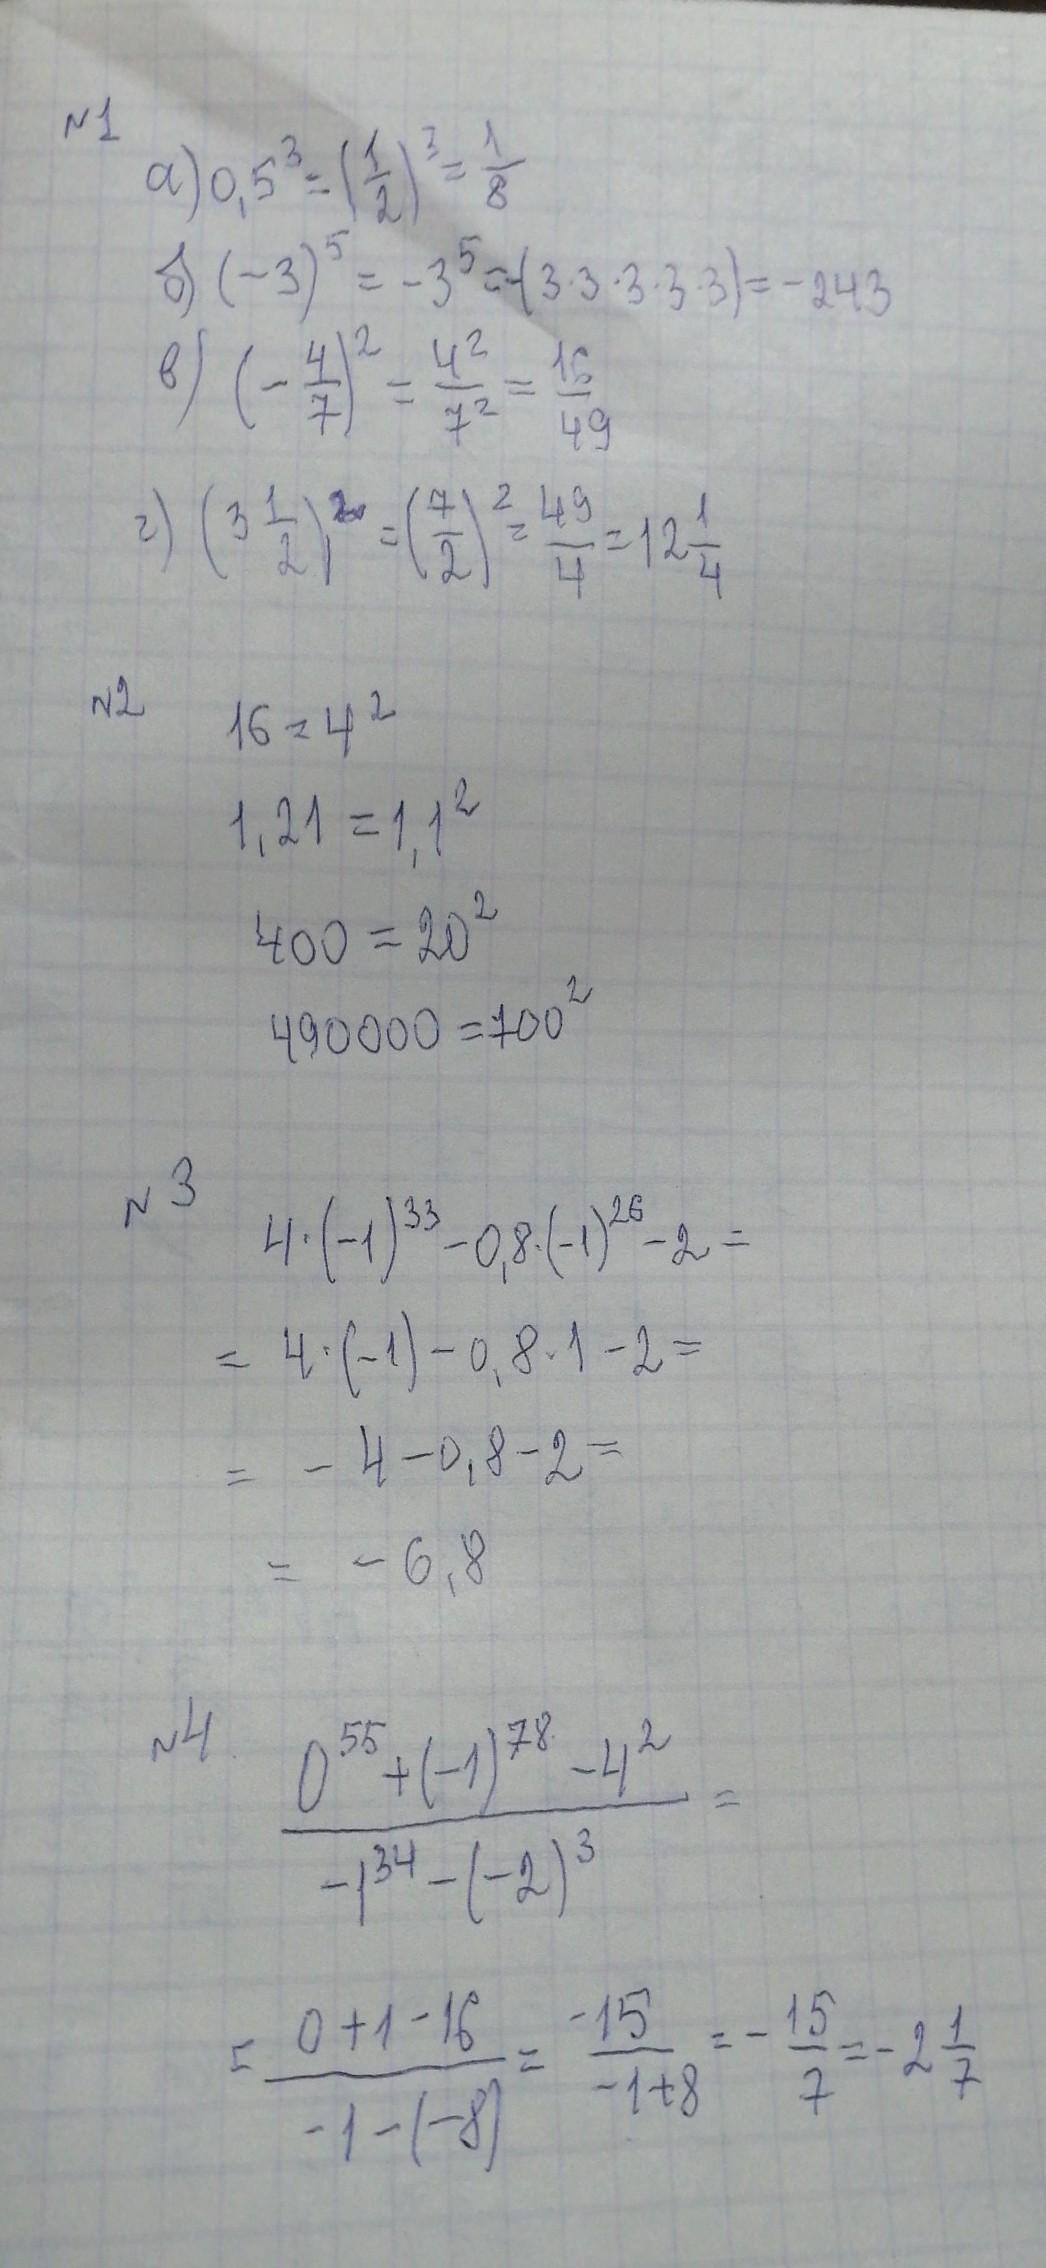 №1
а) 0,5³ = (1/2)³ = 1/8
б) (-3)⁵ = -3⁵ = -(3·3·3·3·3) = -243
в) (-4/7)² = 4²/7² = 16/49
г) (3 1/2)² = (7/2)² = 49/4 = 12 1/4
№2 16 = 4²
1,21 = 1,1²
400 = 20²
490000 = 700²
№3
4·(-1)³³ - 0,8·(-1)²⁶ - 2 =
= 4·(-1) - 0,8·1 - 2 =
= -4 - 0,8 - 2 =
= -6,8
№4 (0⁵⁵ + (-1)⁷⁸ - 4²)/(-1³⁴ - (-2)³) =
= (0 + 1 - 16)/(-1 - (-8)) = -15/(-1 + 8) = -15/7 = -2 1/7